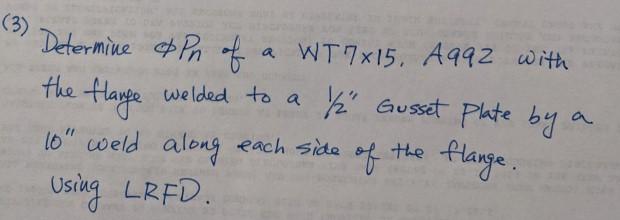 (3) Determine φPn of a WT7x15, A992 with
the flange welded to a 1/2" Gusset Plate by a
10" weld along each side of the flange.
Using LRFD.